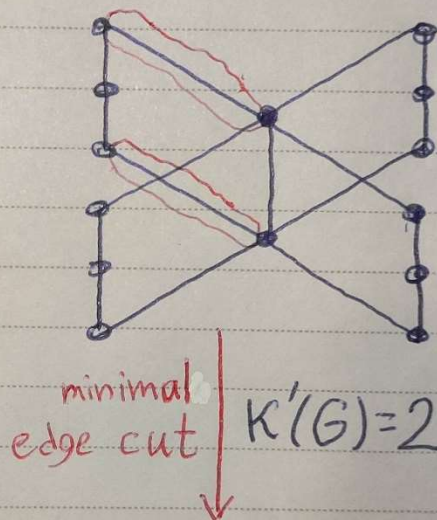 minimal
edge cut
K'(G)=2